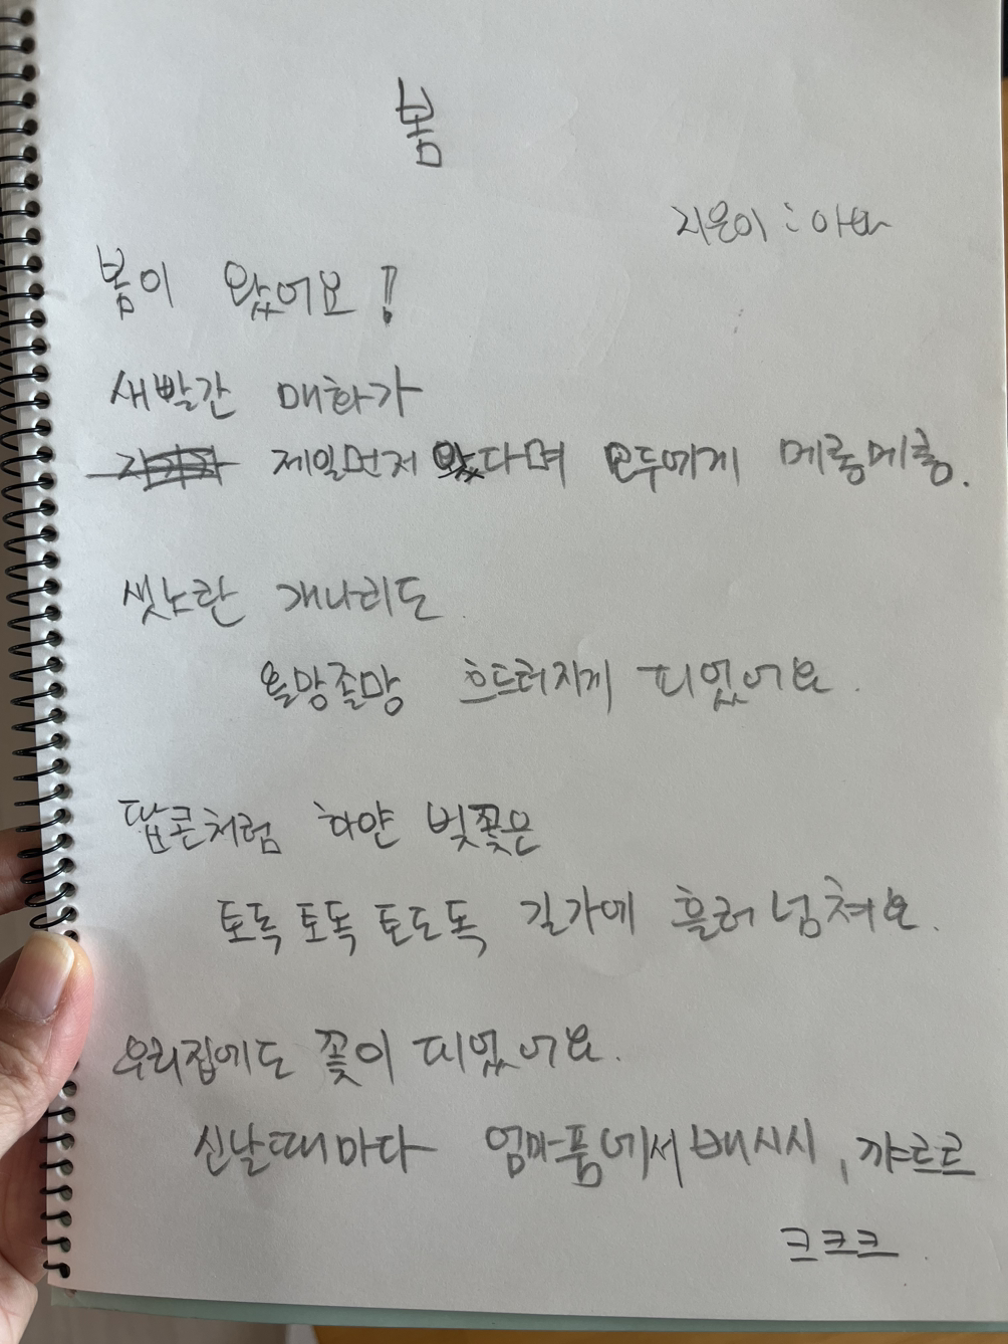 봄
지은이 : 아빠
봄이 왔어요!
새빨간 매화가
제일먼저 왔다며 모두에게 메롱메롱.
샛노란 개나리도
올망졸망 흐드러지게 피었어요.
팝콘처럼 하얀 벚꽃은
토독 토독 토도독 길가에 흘러 넘쳐요.
우리집에도 꽃이 피었어요.
신날때마다 엄마품에서 배시시, 꺄르르
크크크